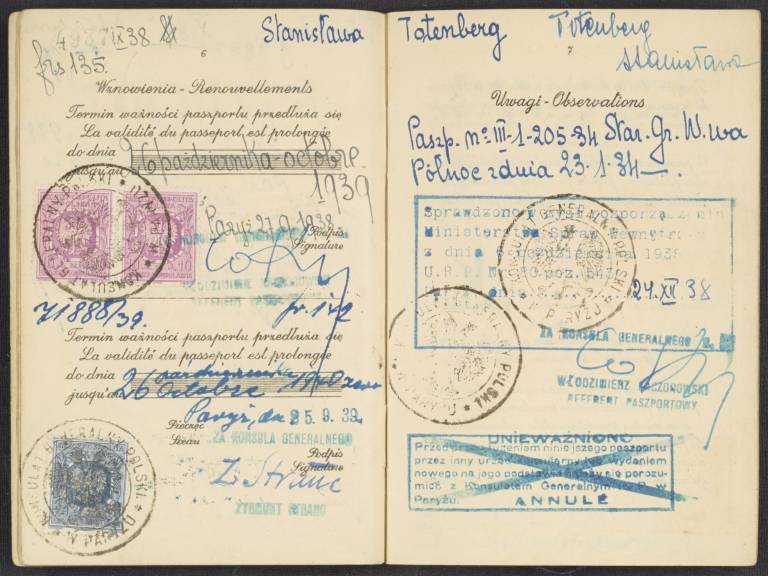 4937/IX 38
frs 135.
Stanisława
6
Wznowienia - Renouvellements
Termin ważności paszportu przedłuża się
La validité du passeport est prolongée
do dnia
jusqu'au
26 października - octobre
1939
Paryż 27.9.1938
Podpis
Signature
ZA KONSULA GENERALNEGO
WŁODZIMIERZ
REFERENT PASZPORTOWY
KONSULAT GENERALNY POLSKI
71888/39.
Termin ważności paszportu przedłuża się
La validité du passeport est prolongée
do dnia
jusqu'au
26 Octobre 1940
Paryż, dn 25.9.39
Pieczęć
Sceau
ZA KONSULA GENERALNEGO
Podpis
Signature
Z Stranc
ZYGMUNT STRANC
KONSULAT GENERALNY POLSKI
W PARYŻU
Totenberg Totenberg
7
Stanisława
Uwagi - Observations
Paszp. nº III-1-205-34 Star. Gr. W. wa
Północ z dnia 23.1.34
Sprawdzono w myśl rozporządzenia
Ministerstwa Spraw Wewnętrz
z dnia października 1938
U.R.P. Nr. 80 poz. 543
24. XII 38
KONSULAT GENERALNY POLSKI
W PARYŻU
ZA KONSULA GENERALNEGO
KONSULAT GENERALNY POLSKI
W PARYŻU
WŁODZIMIERZ
REFERENT PASZPORTOWY
UNIEWAŻNIONO
Przed przedłużeniem niniejszego paszportu
przez inny urząd konsularny lub wydaniem
nowego na jego podstawie należy się porozu-
mieć z Konsulatem Generalnym R. P. w
Paryżu.
ANNULÉ